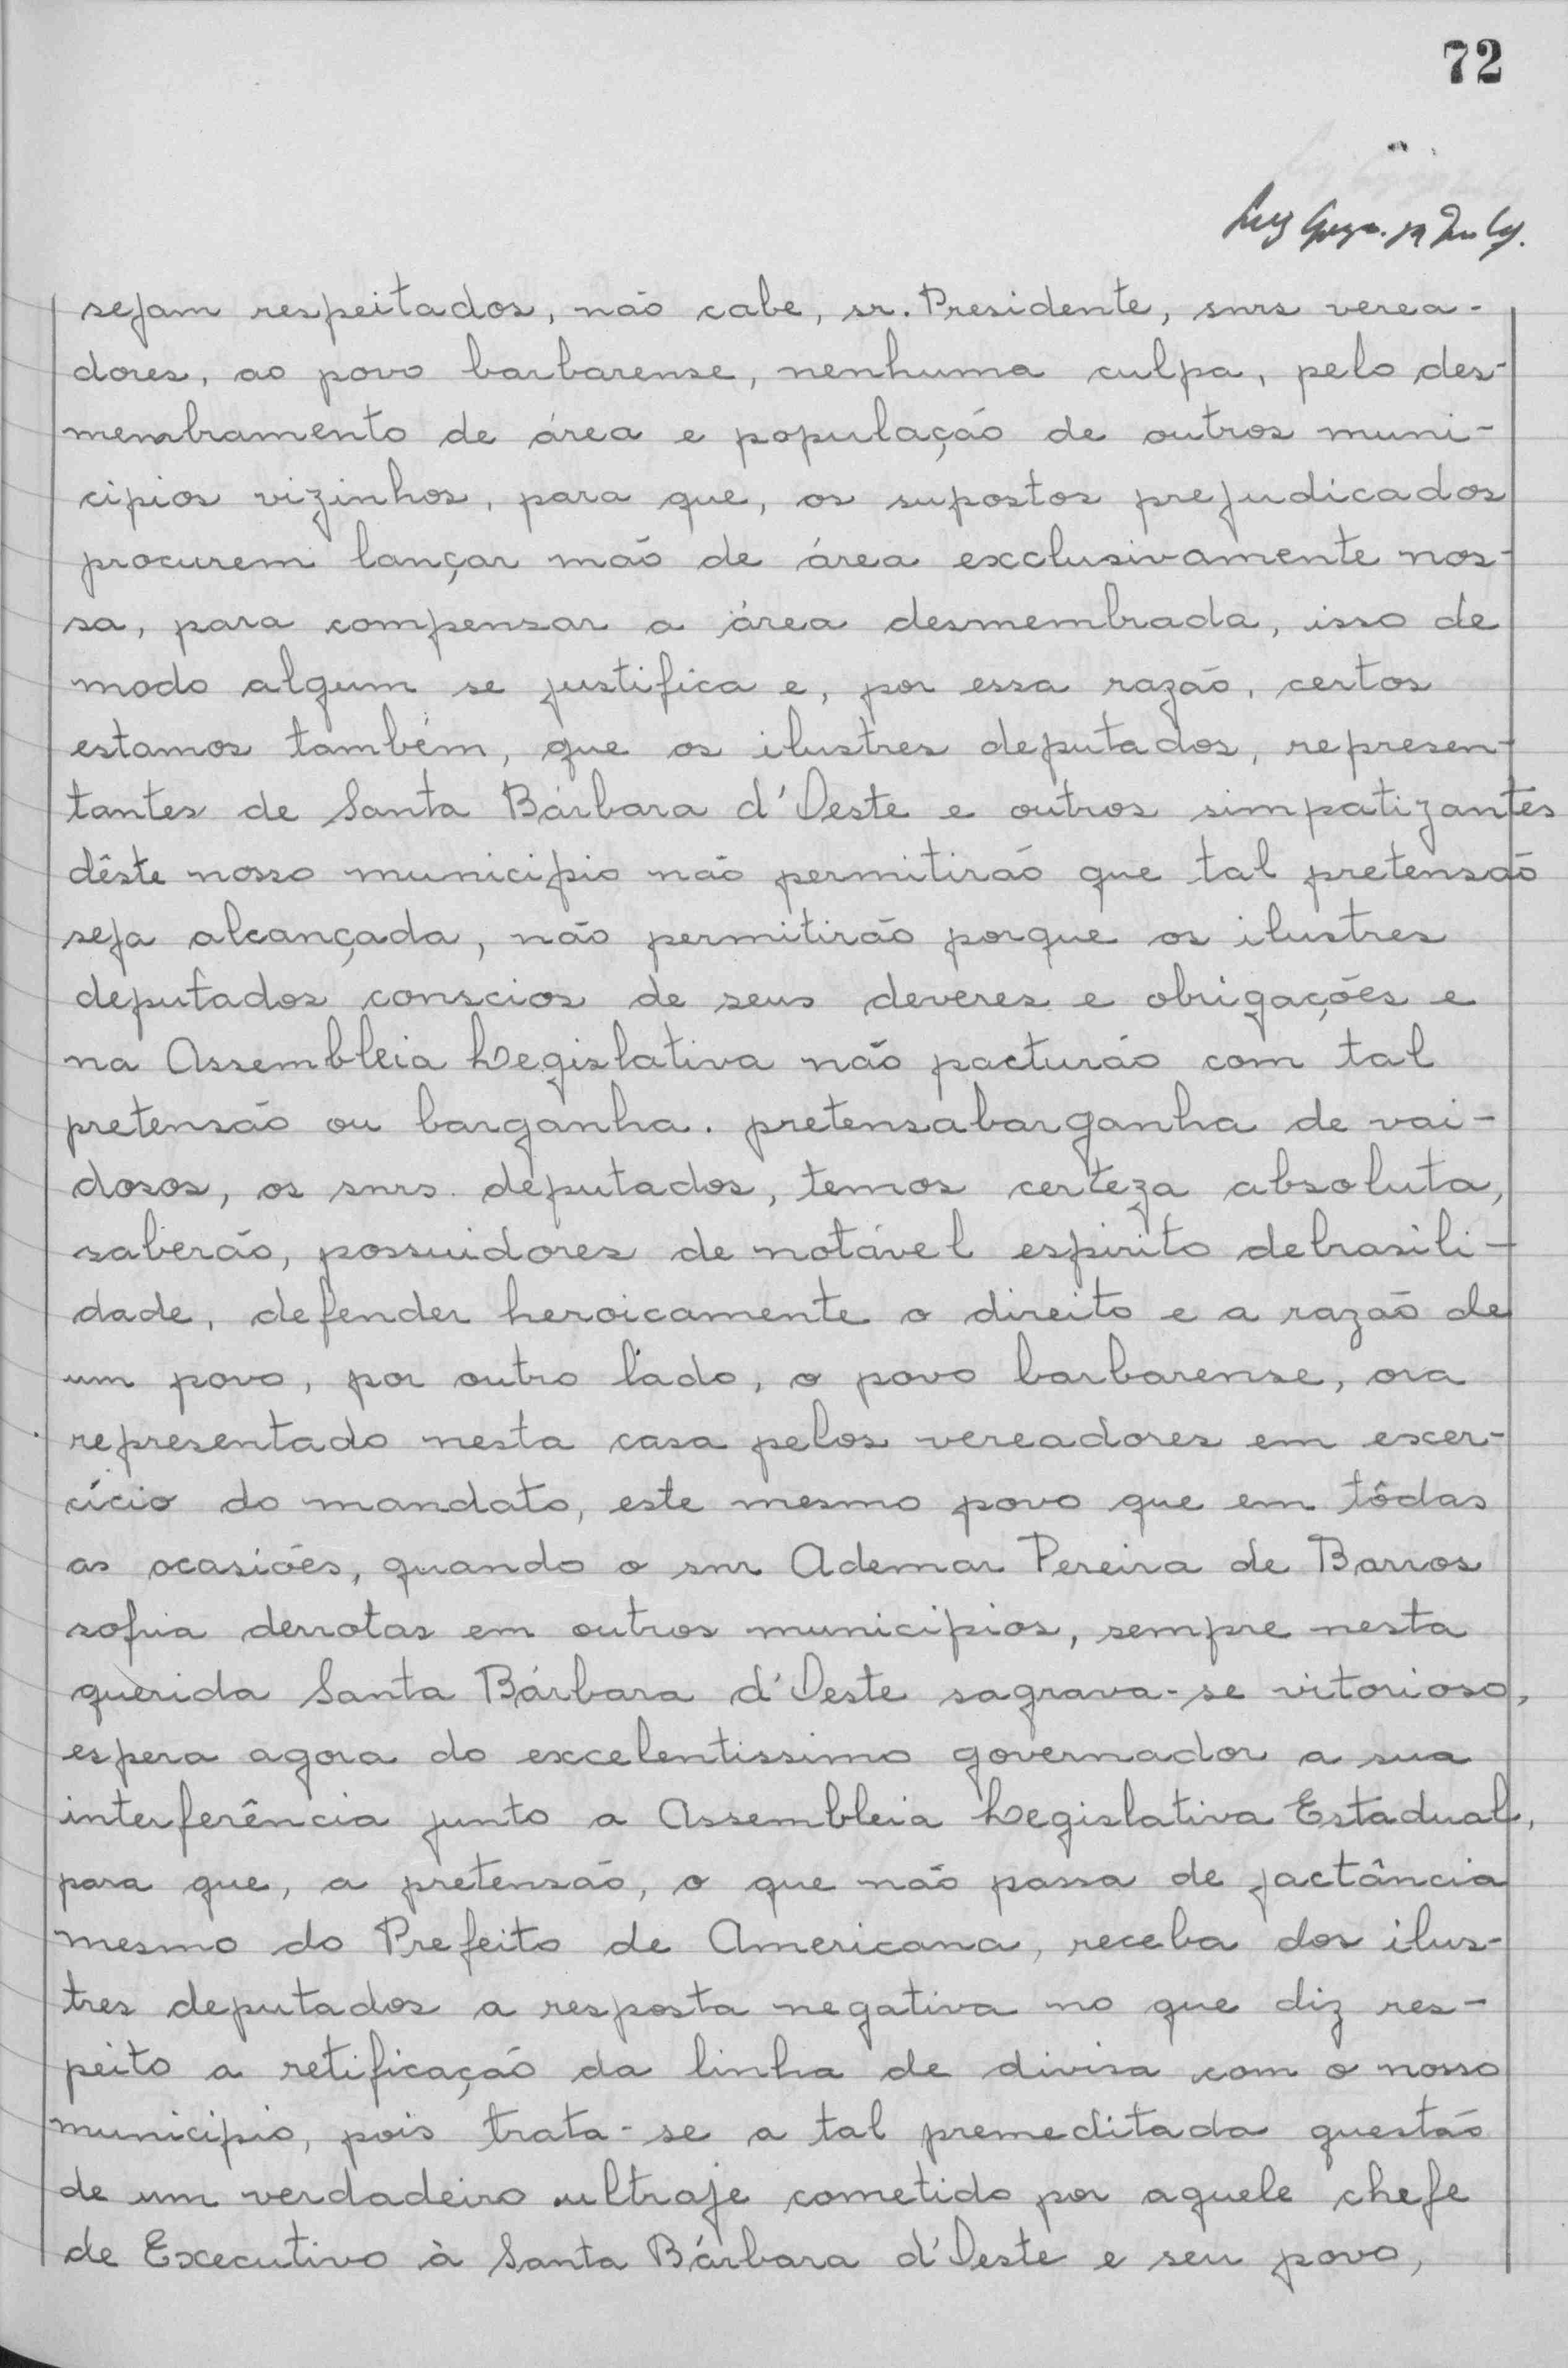 72
sejam respeitados, não cabe, sr. Presidente, snrs verea-
dores, ao povo barbarense, nenhuma culpa, pelo des-
membramento de área e população de outros muni-
cipios vizinhos, para que, os supostos prejudicados
procurem lançar mão de área exclusivamente nos-
sa, para compensar a área desmembrada, isso de
modo algum se justifica e, por essa razão, certos
estamos também, que os ilustres deputados, represen-
tantes de Santa Bárbara d'Oeste e outros simpatizantes
dêste nosso municipio não permitirão que tal pretensão
seja alcançada, não permitirão porque os ilustres
deputados conscios de seus deveres e obrigações e
na Assembleia Legislativa não pacturão com tal
pretensão ou barganha. pretensabarganha de vai-
dosos, os snrs. deputados, temos certeza absoluta,
saberão, possuidores de notável espirito debrasili-
dade, defender heroicamente o direito e a razão de
um povo, por outro lado, o povo barbarense, ora
representado nesta casa pelos vereadores em excer-
cício do mandato, este mesmo povo que em tôdas
as ocasiões, quando o snr Ademar Pereira de Barros
sofria derrotas em outros municipios, sempre nesta
querida Santa Bárbara d'Oeste sagrava-se vitorioso,
espera agora do excelentissimo governador a sua
interferência junto a Assembleia Legislativa Estadual,
para que, a pretensão, o que não passa de jactância
mesmo do Prefeito de Americana, receba dos ilus-
tres deputados a resposta negativa no que diz res-
peito a retificação da linha de divisa com o nosso
municipio, pois trata-se a tal premeditada questão
de um verdadeiro ultraje cometido por aquele chefe
de Executivo à Santa Bárbara d'Oeste e seu povo,